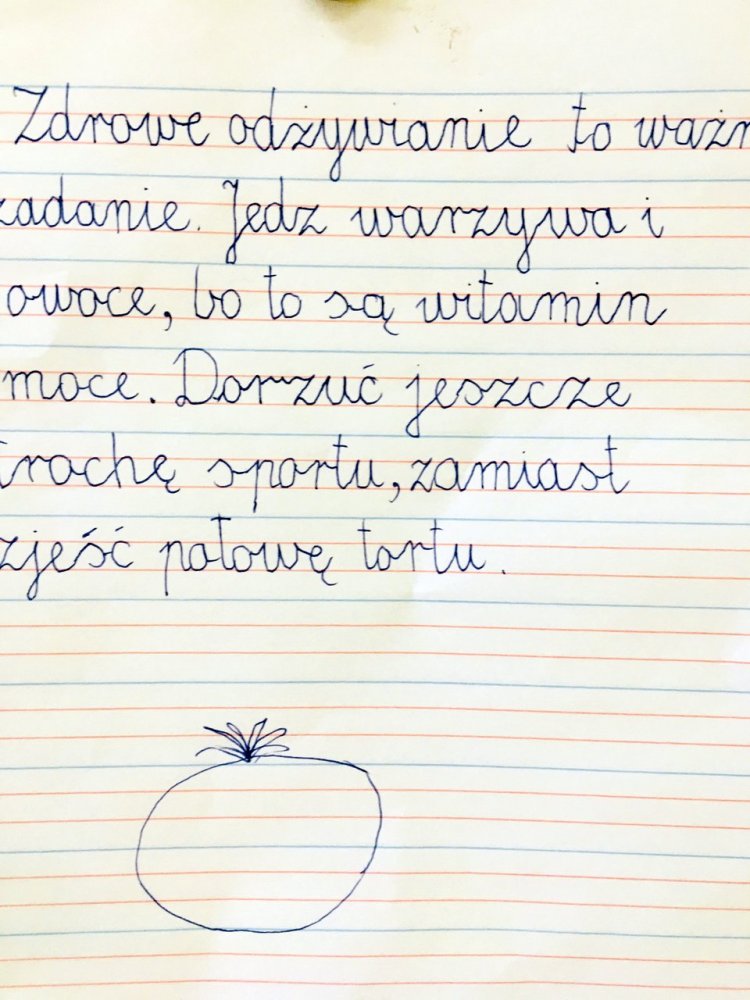 Zdrowe odżywianie to ważn
zadanie. Jedz warzywa i
owoce, bo to są witamin
moce. Dorzuć jeszcze
trochę sportu, zamiast
zjeść połowę tortu.